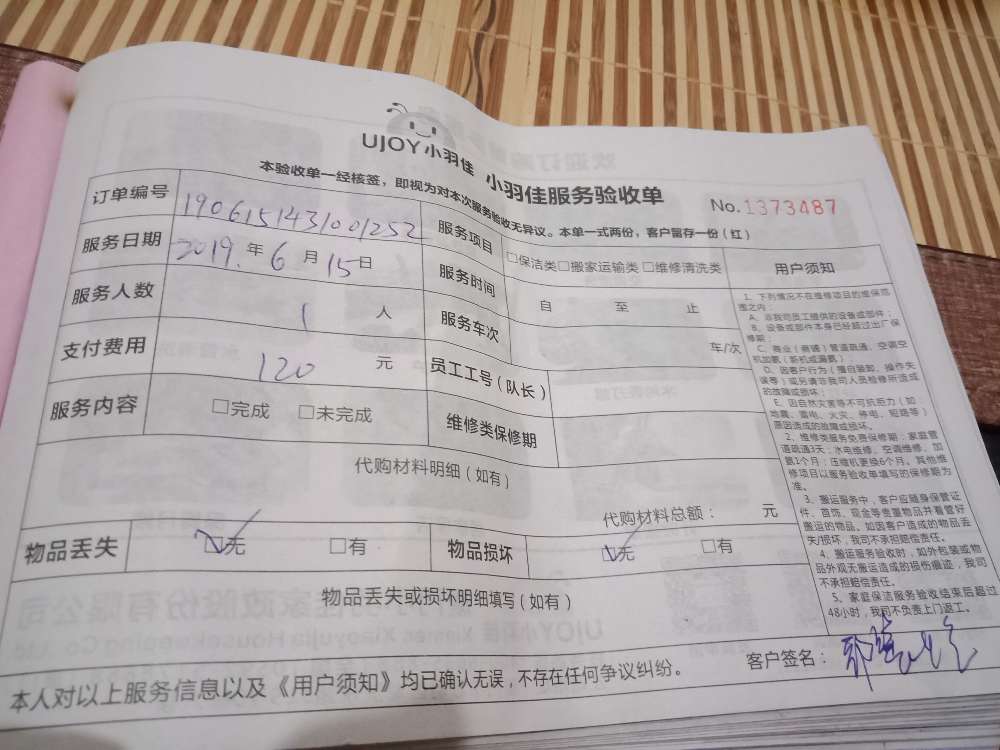 UJOY小羽佳 小羽佳服务验收单
No.1373487
本验收单一经核签，即视为对本次服务验收无异议。本单一式两份，客户留存一份（红）
订单编号 190615143100 1252 服务项目 □保洁类□搬家运输类□维修清洗类 用户须知
服务日期 2019.年 6 月 15 日 服务时间 自 至 止
服务人数 1 人 服务车次 车/次
支付费用 120 元 员工工号（队长）
服务内容 □完成 □未完成 维修类保修期
代购材料明细（如有）
代购材料总额： 元
物品丢失 ☑无 □有 物品损坏 ☑无 □有
物品丢失或损坏明细填写（如有）
1、下列情况不在维修项目的维保范
围之内：
A、非我司员工提供的设备或部件；
B、设备或部件本身已经超过出厂保
修期；
C、商业（商铺）管道疏通、空调空
机加氨（新机或漏氨）；
D、因客户行为（擅自装卸、操作失
误等）或另请非我司人员检修所造成
的故障或损坏；
E、因自然灾害等不可抗拒力（如
地震、雷电、火灾、停电、短路等）
原因造成的故障或损坏。
2、维修类服务免费保修期：家庭管
道疏通3天；水电维修、空调维修、加
氨1个月；压缩机更换6个月。其他维
修项目以服务验收单填写的保修期为
准。
3、搬运服务中，客户应随身保管证
件、首饰、现金等贵重物品并看管好
搬运的物品。如因客户造成的物品丢
失/损坏，我司不承担赔偿责任。
4、搬运服务验收时，如外包装或物
品外观无搬运造成的损伤痕迹，我司
不承担赔偿责任。
5、家庭保洁服务验收结束后超过
48小时，我司不负责上门返工。
客户签名：
本人对以上服务信息以及《用户须知》均已确认无误，不存在任何争议纠纷。